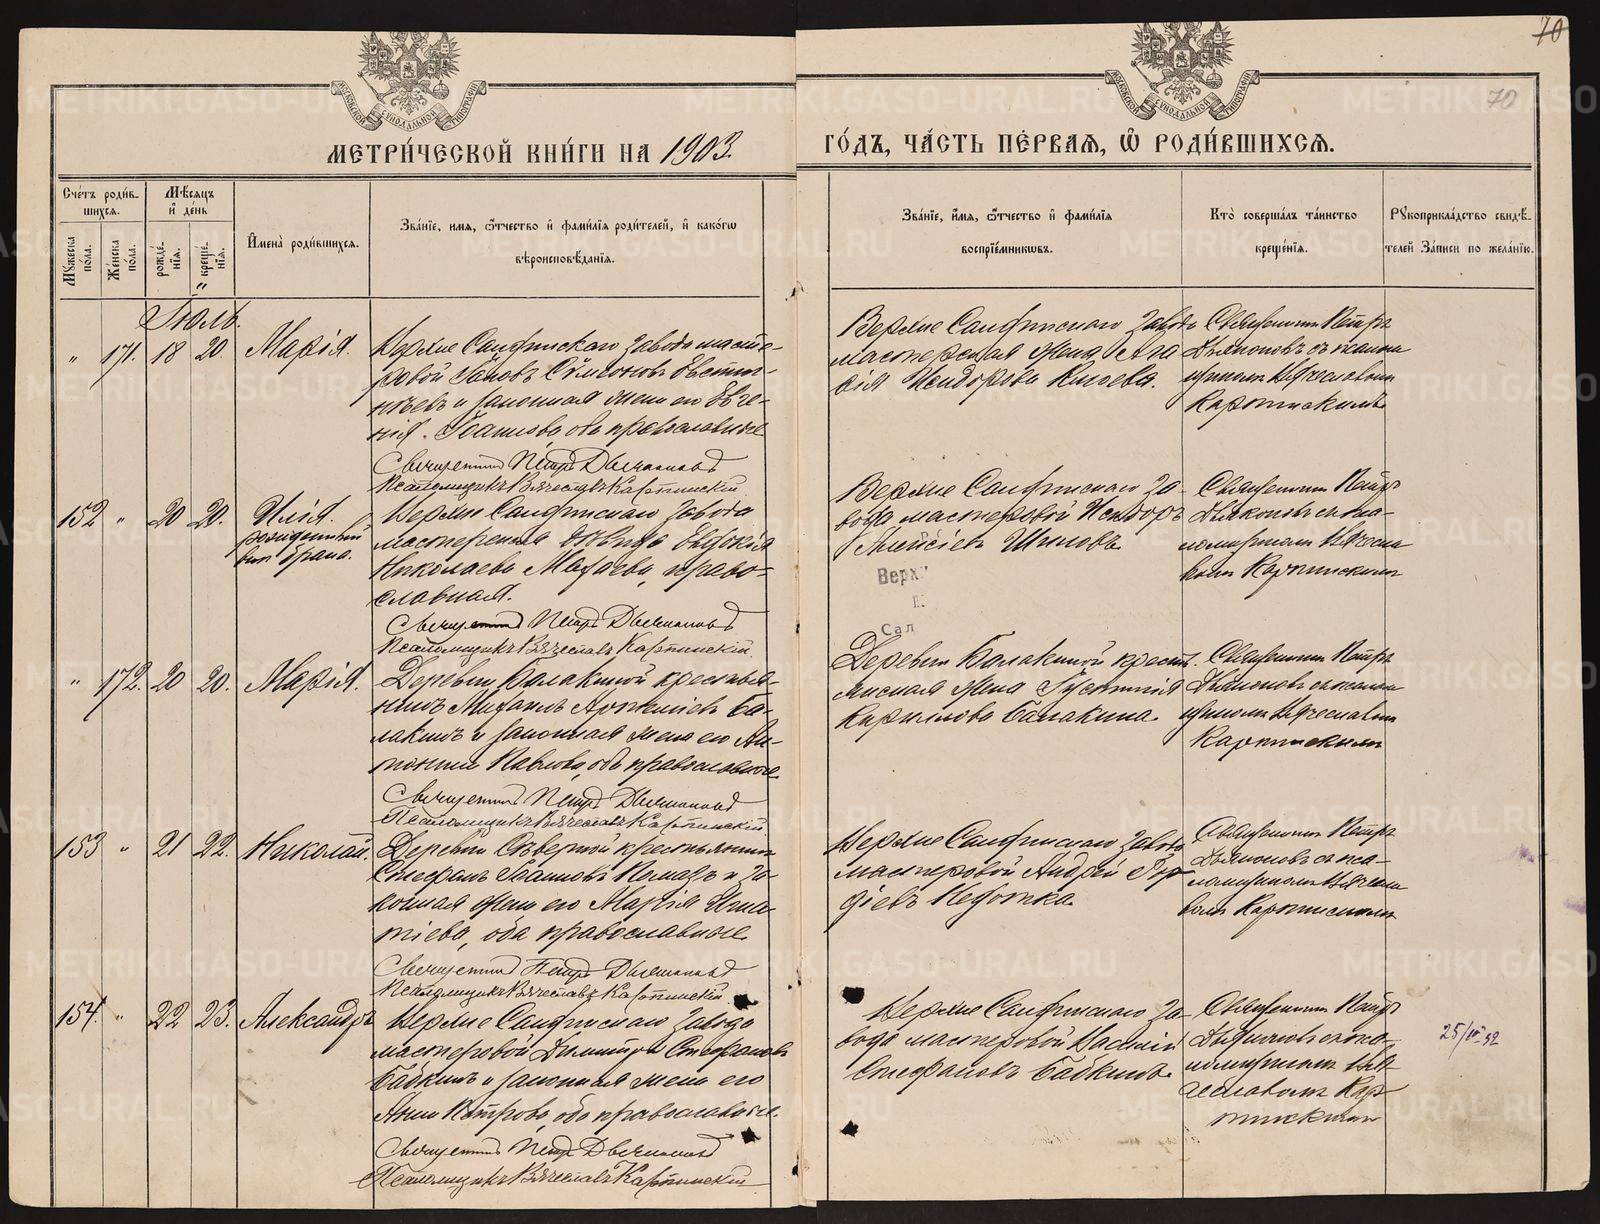 70
70
МЕТРИ́ЧЕСКОЙ КНИ́ГИ НА 1903.
ГО́ДЪ, ЧА́СТЬ ПЕ́РВАЯ, Ѿ РОДИ́ВШИХСЯ.
Сче́тъ роди́в-
шихся.
Мꙋжеска по́ла.
Же́нска по́ла.
Мѣ́сяцъ
и҆ де́нь
рожде́нїя.
креще́нїя.
И҆мена̀ роди́вшихся.
Зва́нїе, имя, ѻ҆́тчество и҆ фами́лїя роди́телей, и҆ како́гѡ
вѣроисповѣ́данїя.
Зва́нїе, и҆́мя, ѻ҆́тчество и҆ фами́лїя
воспрїе́мниковъ.
Кто̀ соверша́лъ та́инство
креще́нїя.
Рꙋкоприкла́дство свидѣ́-
телей за́писи по жела́нїю.
Іюль.
" 171. 18 20. Марія.
Верхне Салдинскаго завода масте-
ровой Іаковъ Сѵмеоновъ Евстиг-
нѣевъ и законная жена его Евге-
нія Іоаннова, оба православные
Священникъ Петръ Дьяконовъ
Псаломщикъ Вячеславъ Карпинскій
Верхне Салдинскаго завода
мастерская жена Ага
вія Исидорова
Священникъ Петръ
Дьяконовъ съ псалом
щикомъ Вячеславомъ
Карпинскимъ
152 " 20 20. Илія.
Верхне Салдинскаго завода
мастерская дѣвица Евдокія
Николаева Мохаева, право-
славная.
Священникъ Петръ Дьяконовъ
Псаломщикъ Вячеславъ Карпинскій
Верхне Салдинскаго за-
вода мастеровой Исидоръ
Алексіевъ Шиловъ
Священникъ Петръ
Дьяконовъ съ пса-
ломщикомъ Вячесла
вомъ Карпинскимъ
Верх
Сал
" 172. 20 20. Марія.
Деревни Балакиной крестья-
нинъ Михаилъ Ба-
лакинъ и законная жена его Ан-
тонина Павлова, оба православные
Священникъ Петръ Дьяконовъ
Псаломщикъ Вячеславъ Карпинскій
Деревни Балакиной кресть
янская жена Іустинія
Кириллова Балакина
Священникъ Петръ
Дьяконовъ съ псалом
щикомъ Вячеславомъ
Карпинскимъ
153 " 21 22. Николай.
Деревни Сѣверной крестьянинъ
Стефанъ Іоанновъ и за-
конная жена его Марія Игна-
тіева, оба православные
Священникъ Петръ Дьяконовъ
Псаломщикъ Вячеславъ Карпинскій
Верхне Салдинскаго завода
мастеровой Андрей Гор
діевъ
Священникъ Петръ
Дьяконовъ съ пса-
ломщикомъ Вячесла
вомъ Карпинскимъ
154. " 22 23. Александръ
Верхне Салдинскаго завода
мастеровой Димитрій Стефановъ
Бабкинъ и законная жена его
Анна Петрова, оба православные.
Священникъ Петръ Дьяконовъ
Псаломщикъ Вячеславъ Карпинскій
Верхне Салдинскаго за-
вода мастеровой Василій
Стефановъ Бабкинъ
Священникъ Петръ
Дьяконовъ съ пса-
ломщикомъ Вя-
чеславомъ Кар-
пинскимъ
METRIKI.GASO-URAL.RU